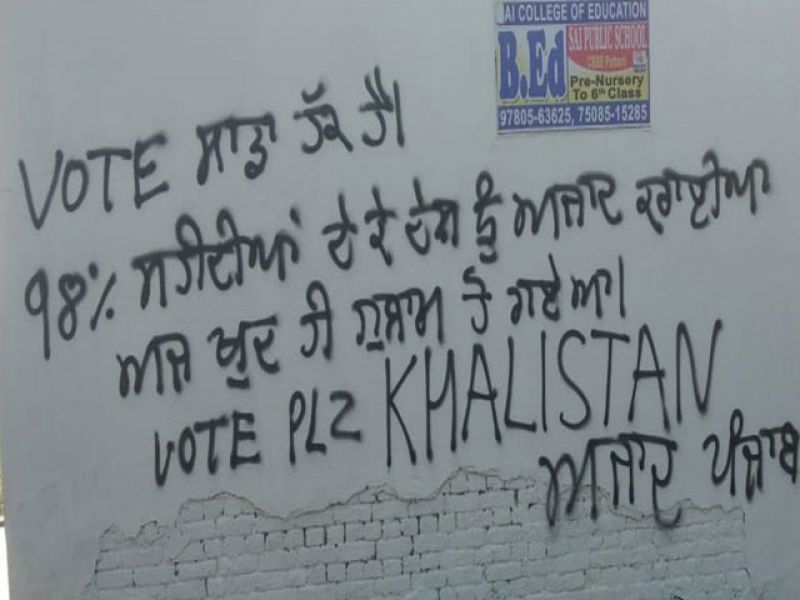 SAI COLLEGE OF EDUCATION
B.Ed
SAI PUBLIC SCHOOL
CBSE Pattern
Pre-Nursery
To 6th Class
97805-63625, 75085-15285
VOTE ਸਾਡਾ ਹੱਕ ਹੈ।
98% ਸ਼ਹੀਦੀਆਂ ਦੇ ਕੇ ਦੇਸ਼ ਨੂੰ ਅਜ਼ਾਦ ਕਰਾਈਆ
ਅਜ ਖੁਦ ਹੀ ਗੁਲਾਮ ਹੋ ਗਏ ਆ।
VOTE PLZ KHALISTAN
ਅਜ਼ਾਦ ਪੰਜਾਬ